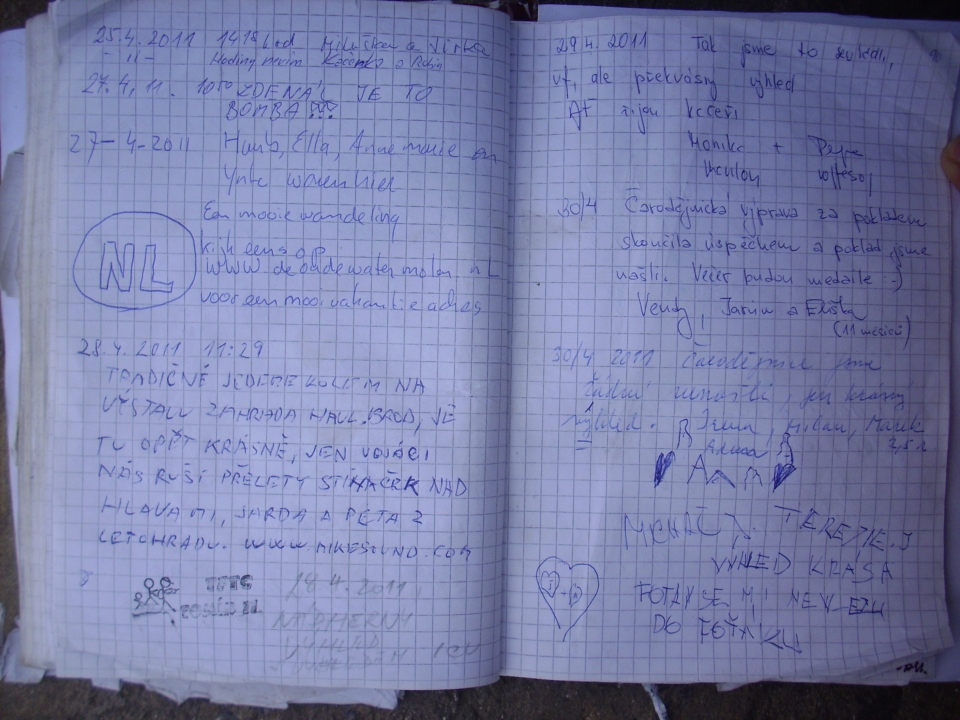 25.4.2011 14¹⁵ hod Miluška a Jirka
- " -
27.4.11. 10⁵⁰ ZDENA! JE TO
BOMBA !!!
27-4-2011 Huub, Ella, Annemarie en
Ynte waren hier
Een mooie wandeling
NL
kijk eens op
www.deoudewatermolen.nl
voor een mooi vakantie adres
28.4.2011 11:29
TRADIČNĚ JEDEME KOLEM NA
VÝSTAVU ZAHRADA HAVL. BROD, JE
TU OPĚT KRÁSNĚ, JEN VOJÁCI
NÁS RUŠÍ PŘELETY STÍHAČEK NAD
HLAVAMI, JARDA A PÉŤA Z
LETOHRADU. WWW.MIKESOUND.COM
2011
NÁDHERNÝ
VÝHLED
29.4.2011 Tak jsme to zvládli,
uf, ale překrásný výhled
Ať žijou
Monika +
30/4 Čarodějnická výprava za pokladem
skončila úspěchem a poklad jsme
našli. Večer budou medaile :-)
Vendy, Jarin a Eliška
(11 měsíců)
30/4 2011 Čarodějnice jsme
žádné nenašli, jen krásný
výhled. Irena, Milan, Marek
2,5 r.
VÝHLED KRÁSA
FOTKY SE MI NEVEJDOU
DO FOŤÁKU